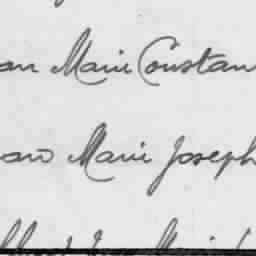 an Marie Constan
ean Marie Joseph